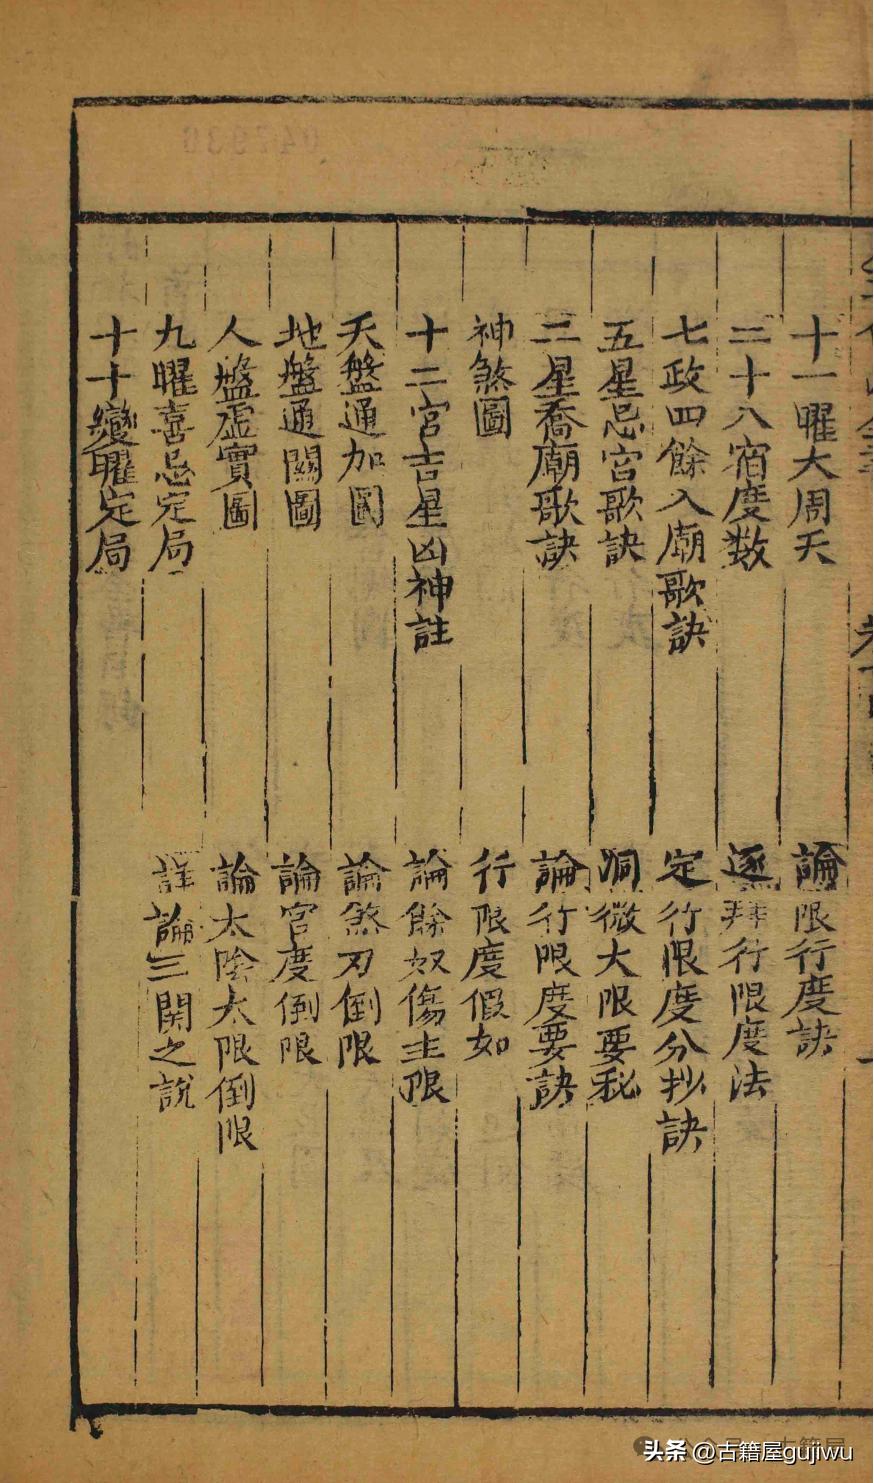 十一曜大周天
二十八宿度数
七政四餘入廟歌訣
五星忌宮歌訣
二星喬廟歌訣
神煞圖
十二宮吉星凶神註
天盤通加圖
地盤通關圖
人盤虛實圖
九曜喜忌定局
十十變曜定局
論限行度訣
逐年行限度法
定行限度分抄訣
洞微大限要秘
論行限度要訣
行限度假如
論餘奴傷主限
論煞刃倒限
論宮度倒限
論太陰太限倒限
詳論三関之說
头条 @古籍屋gujiwu